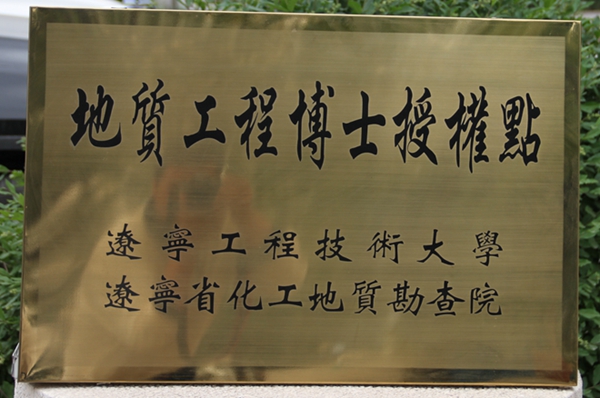 地質工程博士授權點
遼寧工程技術大學
遼寧省化工地質勘查院